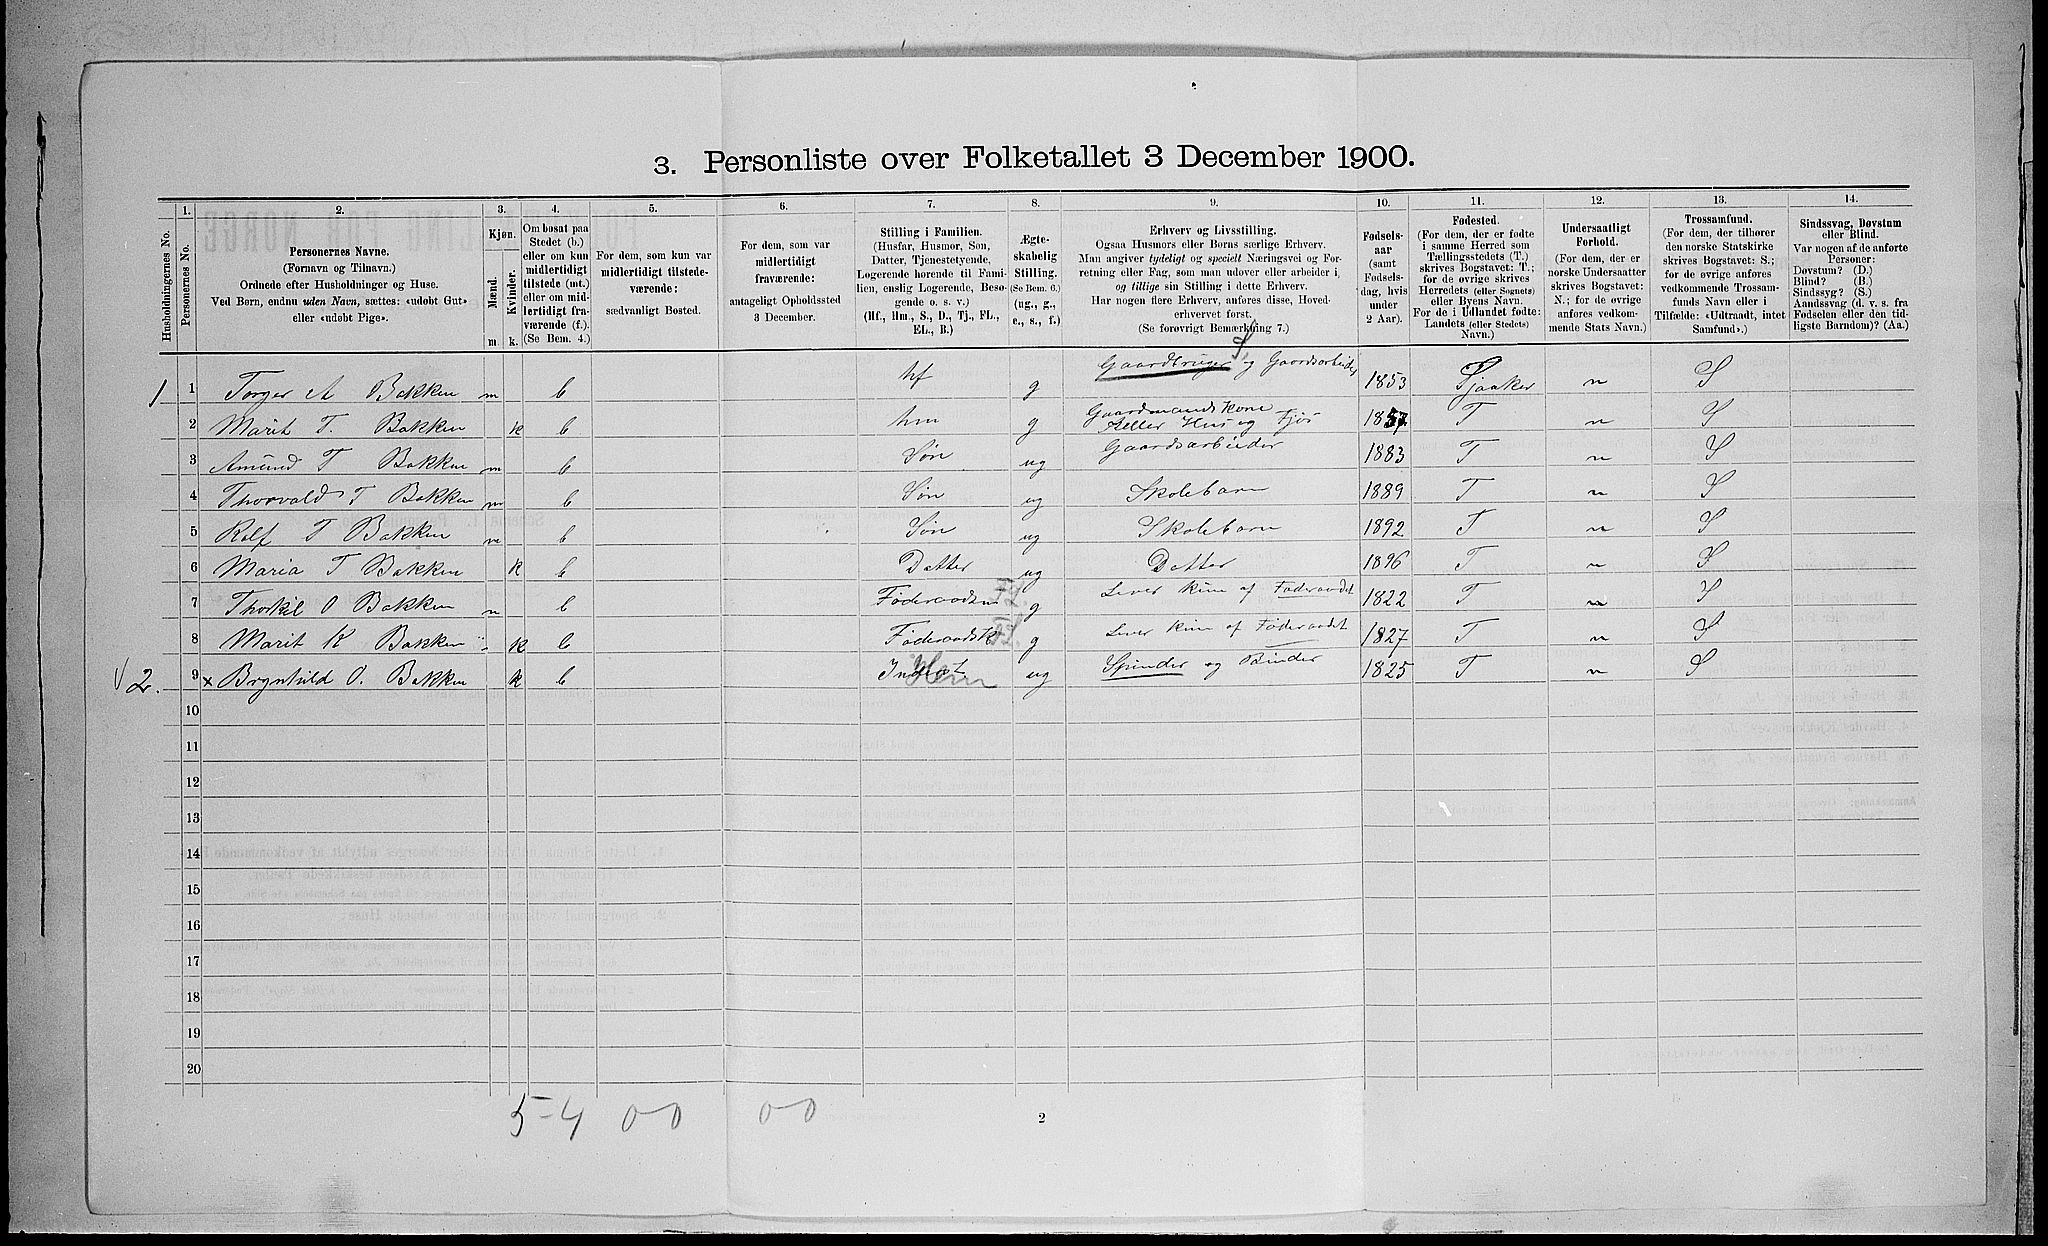 3. Personliste over Folketallet 3 December 1900.
Husholdningernes No.
1.
Personernes No.
2.
Personernes Navne.
(Fornavn og Tilnavn.)
Ordnede efter Husholdninger og Huse.
Ved Børn, endnu uden Navn, sættes: «udøbt Gut»
eller «udøbt Pige».
3.
Kjøn.
Mænd.
Kvinder.
m.
k.
4.
Om bosat paa
Stedet (b.)
eller om kun
midlertidigt
tilstede (mt.)
eller om mid-
lertidigt fra-
værende (f.).
(Se Bem. 4.)
5.
For dem, som kun var
midlertidigt tilstede-
værende:
sædvanligt Bosted.
6.
For dem, som var
midlertidigt
fraværende:
antageligt Opholdssted
3 December.
7.
Stilling i Familien.
(Husfar, Husmor, Søn,
Datter, Tjenestetyende,
Logerende hørende til Fami-
lien, enslig Logerende, Besø-
gende o. s. v.)
(Hf., Hm., S., D., Tj., FL.,
EL., B.)
8.
Ægte-
skabelig
Stilling.
(Se Bem. 6.)
(ug., g.,
e., s., f.)
9.
Erhverv og Livsstilling.
Ogsaa Husmors eller Børns særlige Erhverv.
Man angiver tydeligt og specielt Næringsvei og For-
retning eller Fag, som man udover eller arbeider i,
og tillige sin Stilling i dette Erhverv.
Har nogen flere Erhverv, anføres disse, Hoved-
erhvervet først.
(Se forøvrigt Bemærkning 7.)
10.
Fødsels-
aar
(samt
Fødsels-
dag, hvis
under
2 Aar).
11.
Fødested.
(For dem, der er fødte
i samme Herred som
Tællingsstedets (T.)
skrives Bogstavet: T.;
for de øvrige skrives
Herredets (eller Sognets)
eller Byens Navn.
For de i Udlandet fødte:
Landets (eller Stedets)
Navn.)
12.
Undersaatligt
Forhold.
(For dem, der er
norske Undersaatter
skrives Bogstavet:
N.; for de øvrige
anføres vedkom-
mende Stats Navn.)
13.
Trossamfund.
(For dem, der tilhører
den norske Statskirke
skrives Bogstavet: S.;
for de øvrige anføres
vedkommende Trossam-
funds Navn eller i
Tilfælde: «Udtraadt, intet
Samfund».)
14.
Sindssvag, Døvstum
eller Blind.
Var nogen af de anførte
Personer:
Døvstum? (D.)
Blind? (B.)
Sindssyg? (S.)
Aandssvag (d. v. s. fra
Fødselen eller den tid-
ligste Barndom)? (Aa.)
1 1 Torger A Bakken m b hf g Gaardbruger og Gaardsarbeider 1853 Sjaaker n S
2 Marit T. Bakken k b hm g Gaardmandskone Steller Hus og Fjøs 1857 T n S
3 Amund T Bakken m b Søn ug Gaardsarbeider 1883 T n S
4 Thorvald T Bakken m b Søn ug Skolebarn 1889 T n S
5 Rolf T Bakken m b Søn ug Skolebarn 1892 T n S
6 Maria T Bakken k b Datter ug Datter 1896 T n S
7 Thorkil O Bakken m b Føderaadsm g Lever kun af Føderaadet 1822 T n S
8 Marit K Bakken k b Føderaadsk g Lever kun af Føderaadet 1827 T n S
2. 9 x Brynhild O. Bakken k b ug Spinder og Binder 1825 T n S
10
11
12
13
14
15
16
17
18
19
20
5-4 0 0 0 0
2